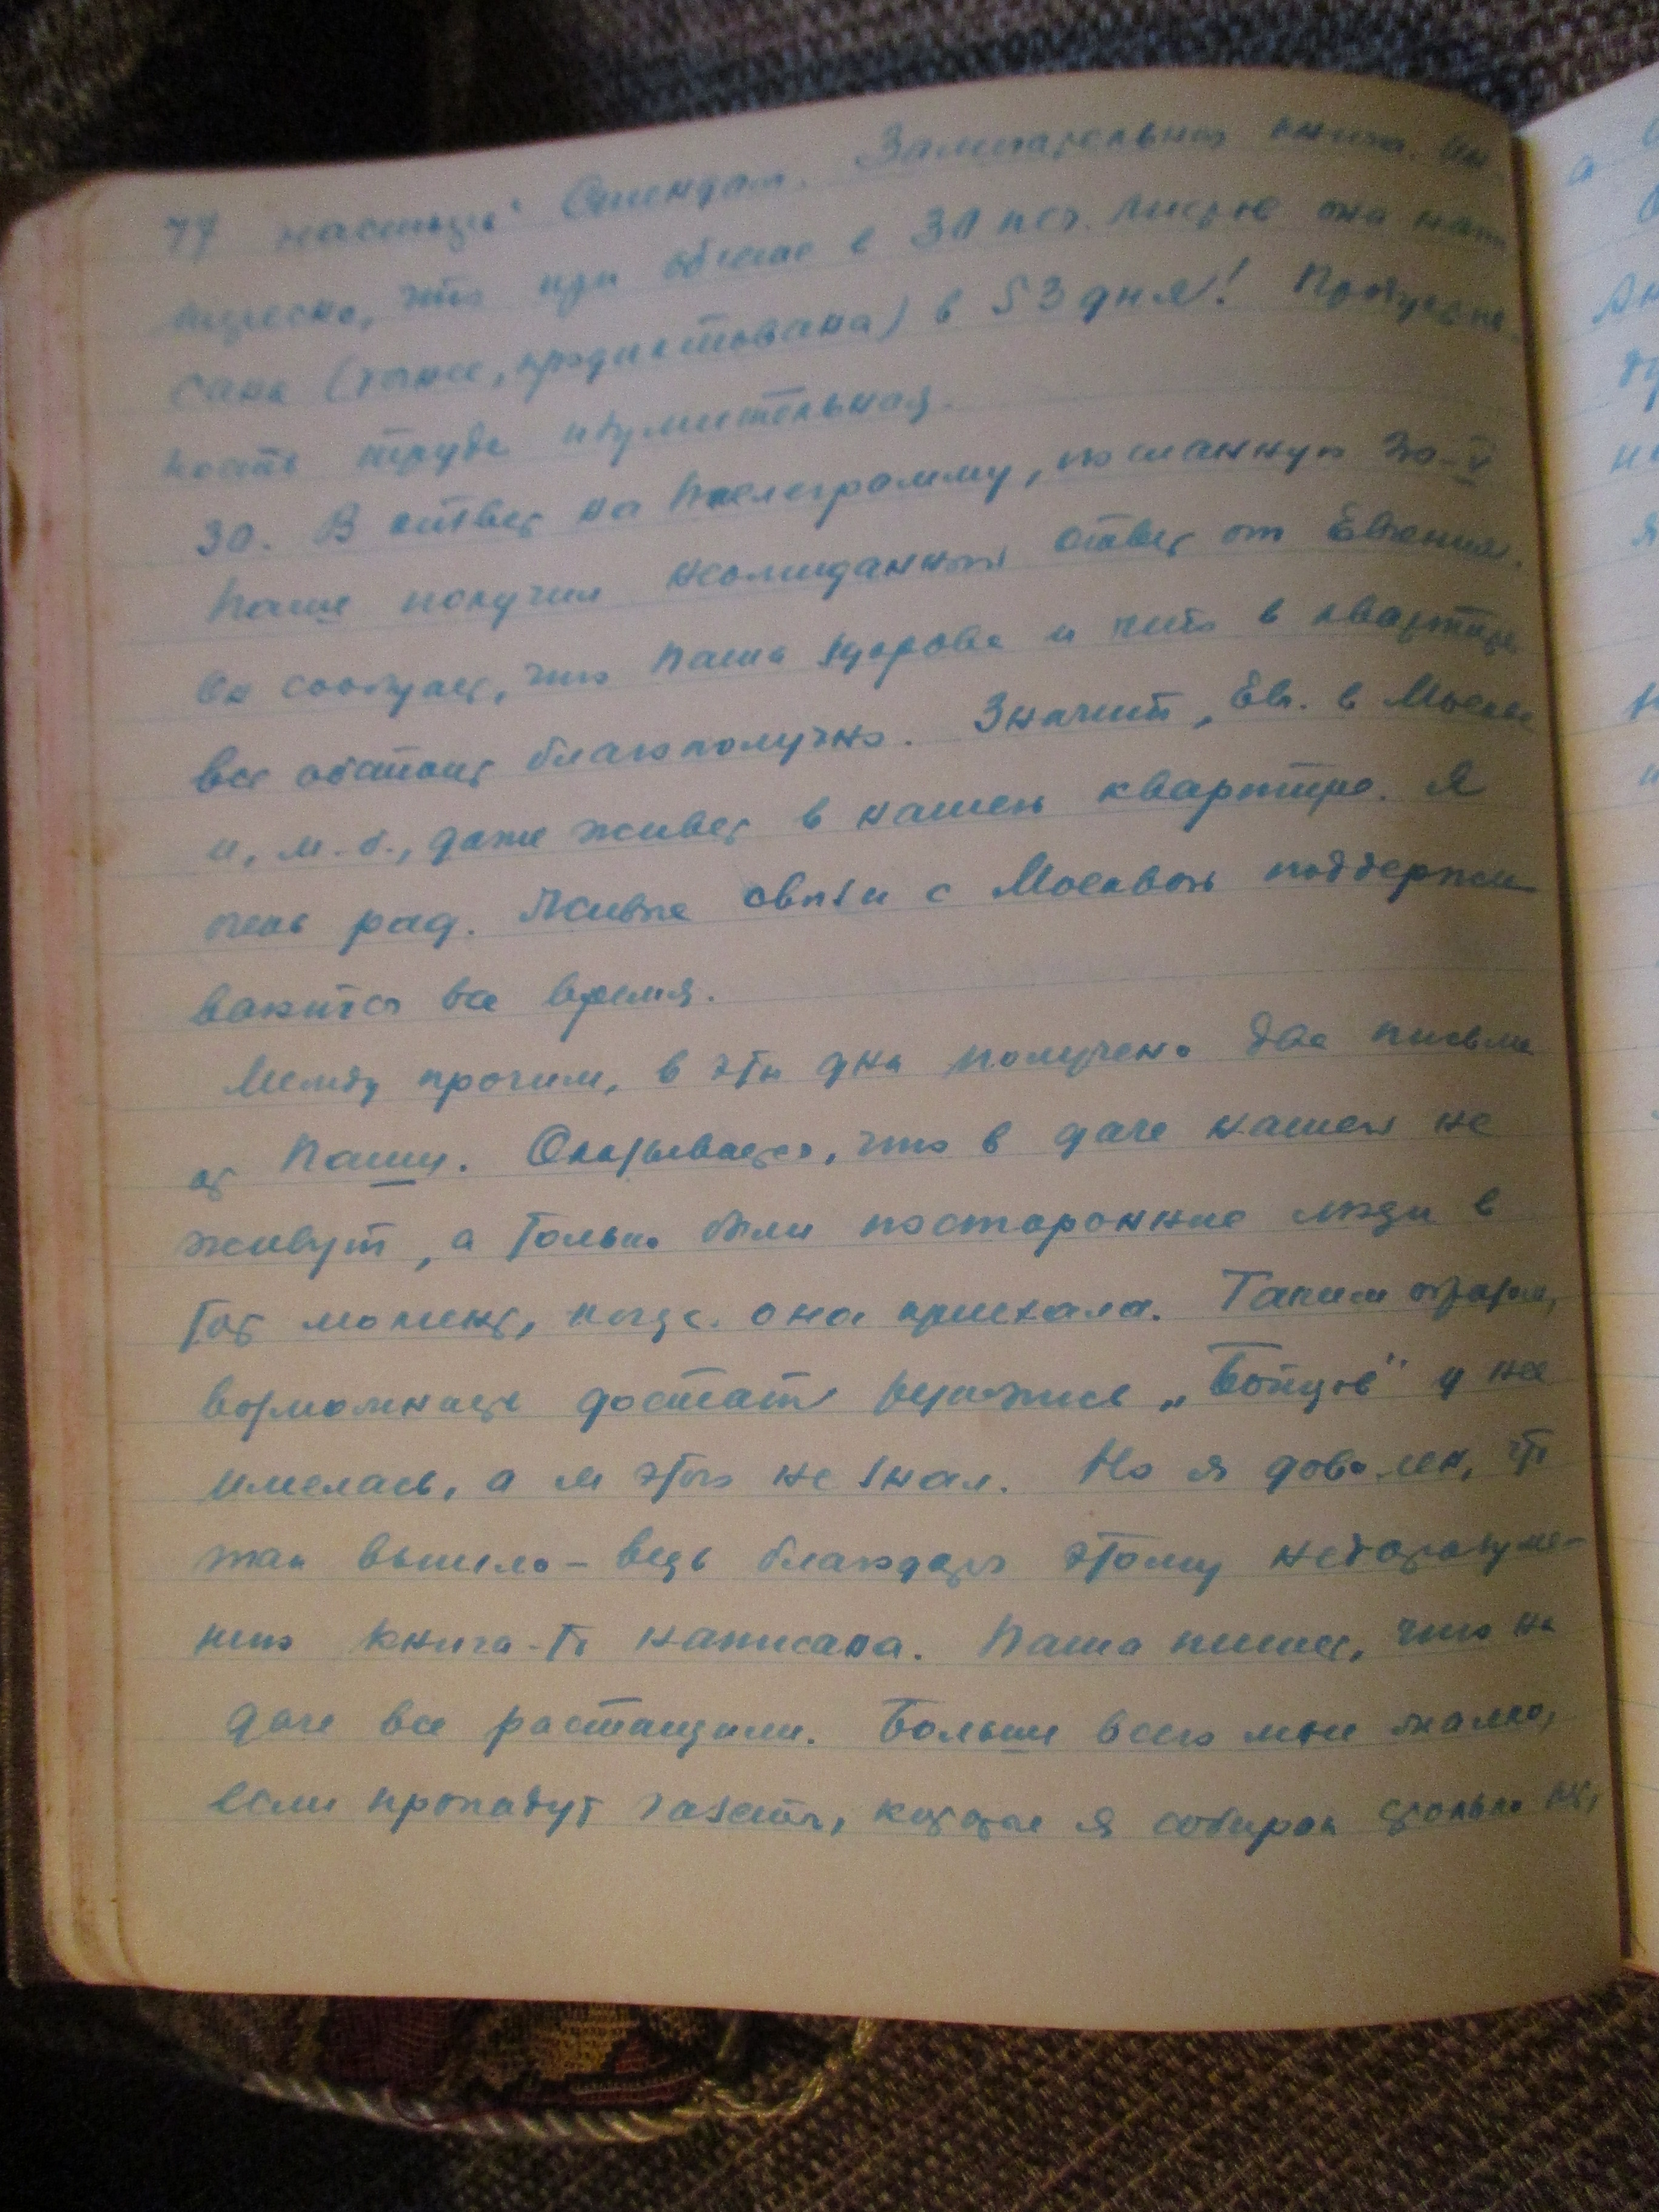 77 настырь" Стендаля. Замечательная книга. Ин
тересно, что при объеме в 30 печ. листов она напи
сана (точнее, продиктована) в 53 дня! Продуктив
ность труда изумительная.
30. В ответ на телеграмму, посланную
Паше получил неожиданный ответ от Евгения.
Он сообщает, что Паша здорова и что в квартире
все обстоит благополучно. Значит, Евг. в Москве
и, м.б., даже живет в нашей квартире. Я
очень рад. Живые связи с Москвой поддержи
ваются все время.
Между прочим, в эти дни получено два письма
от Паши. Оказывается, что в даче нашей не
живут, а только были посторонние люди в
тот момент, когда она приехала. Таким образом,
возможность достать рукопись „Бойцов" у нее
имелась, а я этого не знал. Но я доволен, что
так вышло – ведь благодаря этому недоразуме-
нию книга-то написана. Паша пишет, что на
даче все растащили. Больше всего мне жалко,
если пропадут газеты, которые я собирал столько лет,